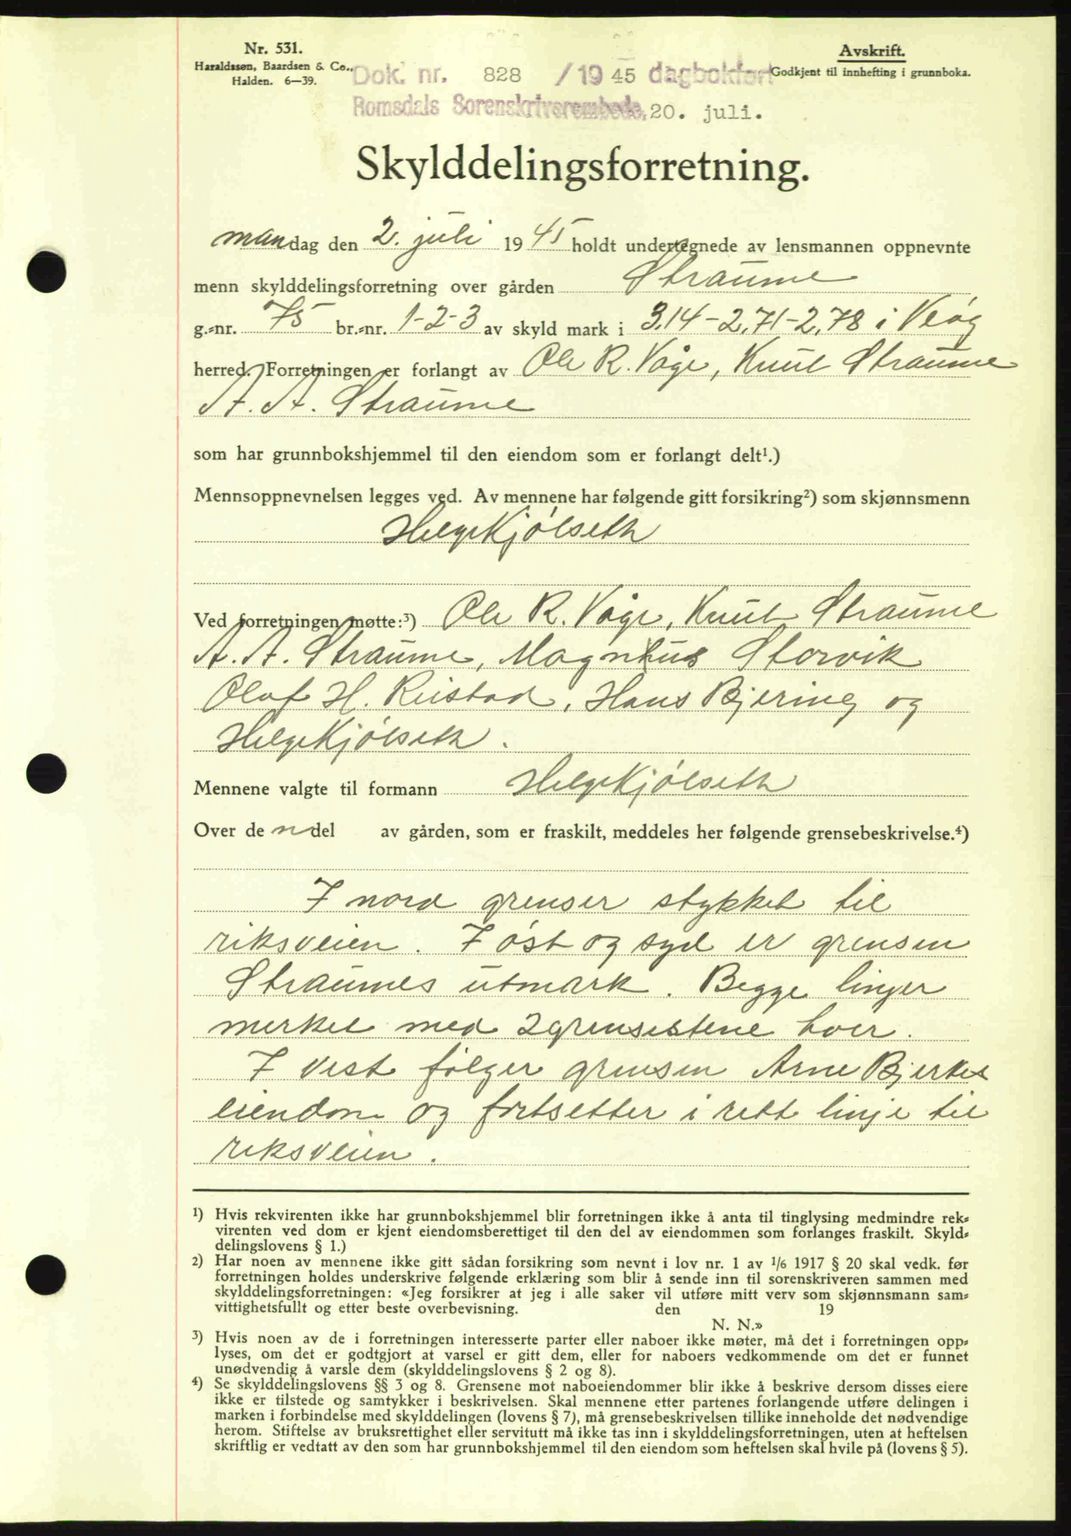 Nr. 531.
Haraldssøn, Baardsen & Co.,
Halden. 6—39.
Avskrift.
Godkjent til innhefting i grunnboka.
Dok. nr. 828 /19 45 dagbokført
Romsdals Sorenskriverembede, 20. juli.
Skylddelingsforretning.
mandag den 2. juli 19 45 holdt undertegnede av lensmannen oppnevnte
menn skylddelingsforretning over gården Straume
g.-nr. 75 br.-nr. 1-2-3 av skyld mark i 3,14-2,71-2,78 i Veøy
herred. Forretningen er forlangt av Ole R. Våge, Knut Straume
A. A. Straume
som har grunnbokshjemmel til den eiendom som er forlangt delt¹.)
Mennsoppnevnelsen legges ved. Av mennene har følgende gitt forsikring²) som skjønnsmenn
Helge Kjølseth
Ved forretningen møtte:³) Ole R. Våge, Knut Straume
A. A. Straume, Magnhus Storvik
Olaf H. Reistad, Hans Bjering og
Helge Kjølseth.
Mennene valgte til formann Helge Kjølseth
Over den del av gården, som er fraskilt, meddeles her følgende grensebeskrivelse.⁴)
I nord grenser stykket til
riksveien. I øst og syd er grensen
Straumes utmark. Begge linjer
merket med 2 grensestene hver.
I vest følger grensen Arne Bjerkes
eiendom og fortsetter i rett linje til
riksveien.
¹) Hvis rekvirenten ikke har grunnbokshjemmel blir forretningen ikke å anta til tinglysing medmindre rek-
virenten ved dom er kjent eiendomsberettiget til den del av eiendommen som forlanges fraskilt. Skyld-
delingslovens § 1.)
²) Har noen av mennene ikke gitt sådan forsikring som nevnt i lov nr. 1 av 1/6 1917 § 20 skal vedk. før
forretningen holdes underskrive følgende erklæring som blir å sende inn til sorenskriveren sammen med
skylddelingsforretningen: «Jeg forsikrer at jeg i alle saker vil utføre mitt verv som skjønnsmann sam-
vittighetsfullt og etter beste overbevisning. den 19
N. N.»
³) Hvis noen av de i forretningen interesserte parter eller naboer ikke møter, må det i forretningen opp-
lyses, om det er godtgjort at varsel er gitt dem, eller for naboers vedkommende om det er funnet
unødvendig å varsle dem (skylddelingslovens § 2 og 8).
⁴) Se skylddelingslovens §§ 3 og 8. Grensene mot naboeiendommer blir ikke å beskrive dersom disses eiere
ikke er tilstede og samtykker i beskrivelsen. Skal mennene etter partenes forlangende utføre delingen i
marken i forbindelse med skylddelingen (lovens § 7), må grensebeskrivelsen tillike inneholde det nødvendige
herom. Stiftelse av bruksrettighet eller servitutt må ikke tas inn i skylddelingsforretningen, uten at heftelsen
skriftlig er vedtatt av den som har grunnbokshjemmel til den eiendom som heftelsen skal hvile på (lovens § 5).